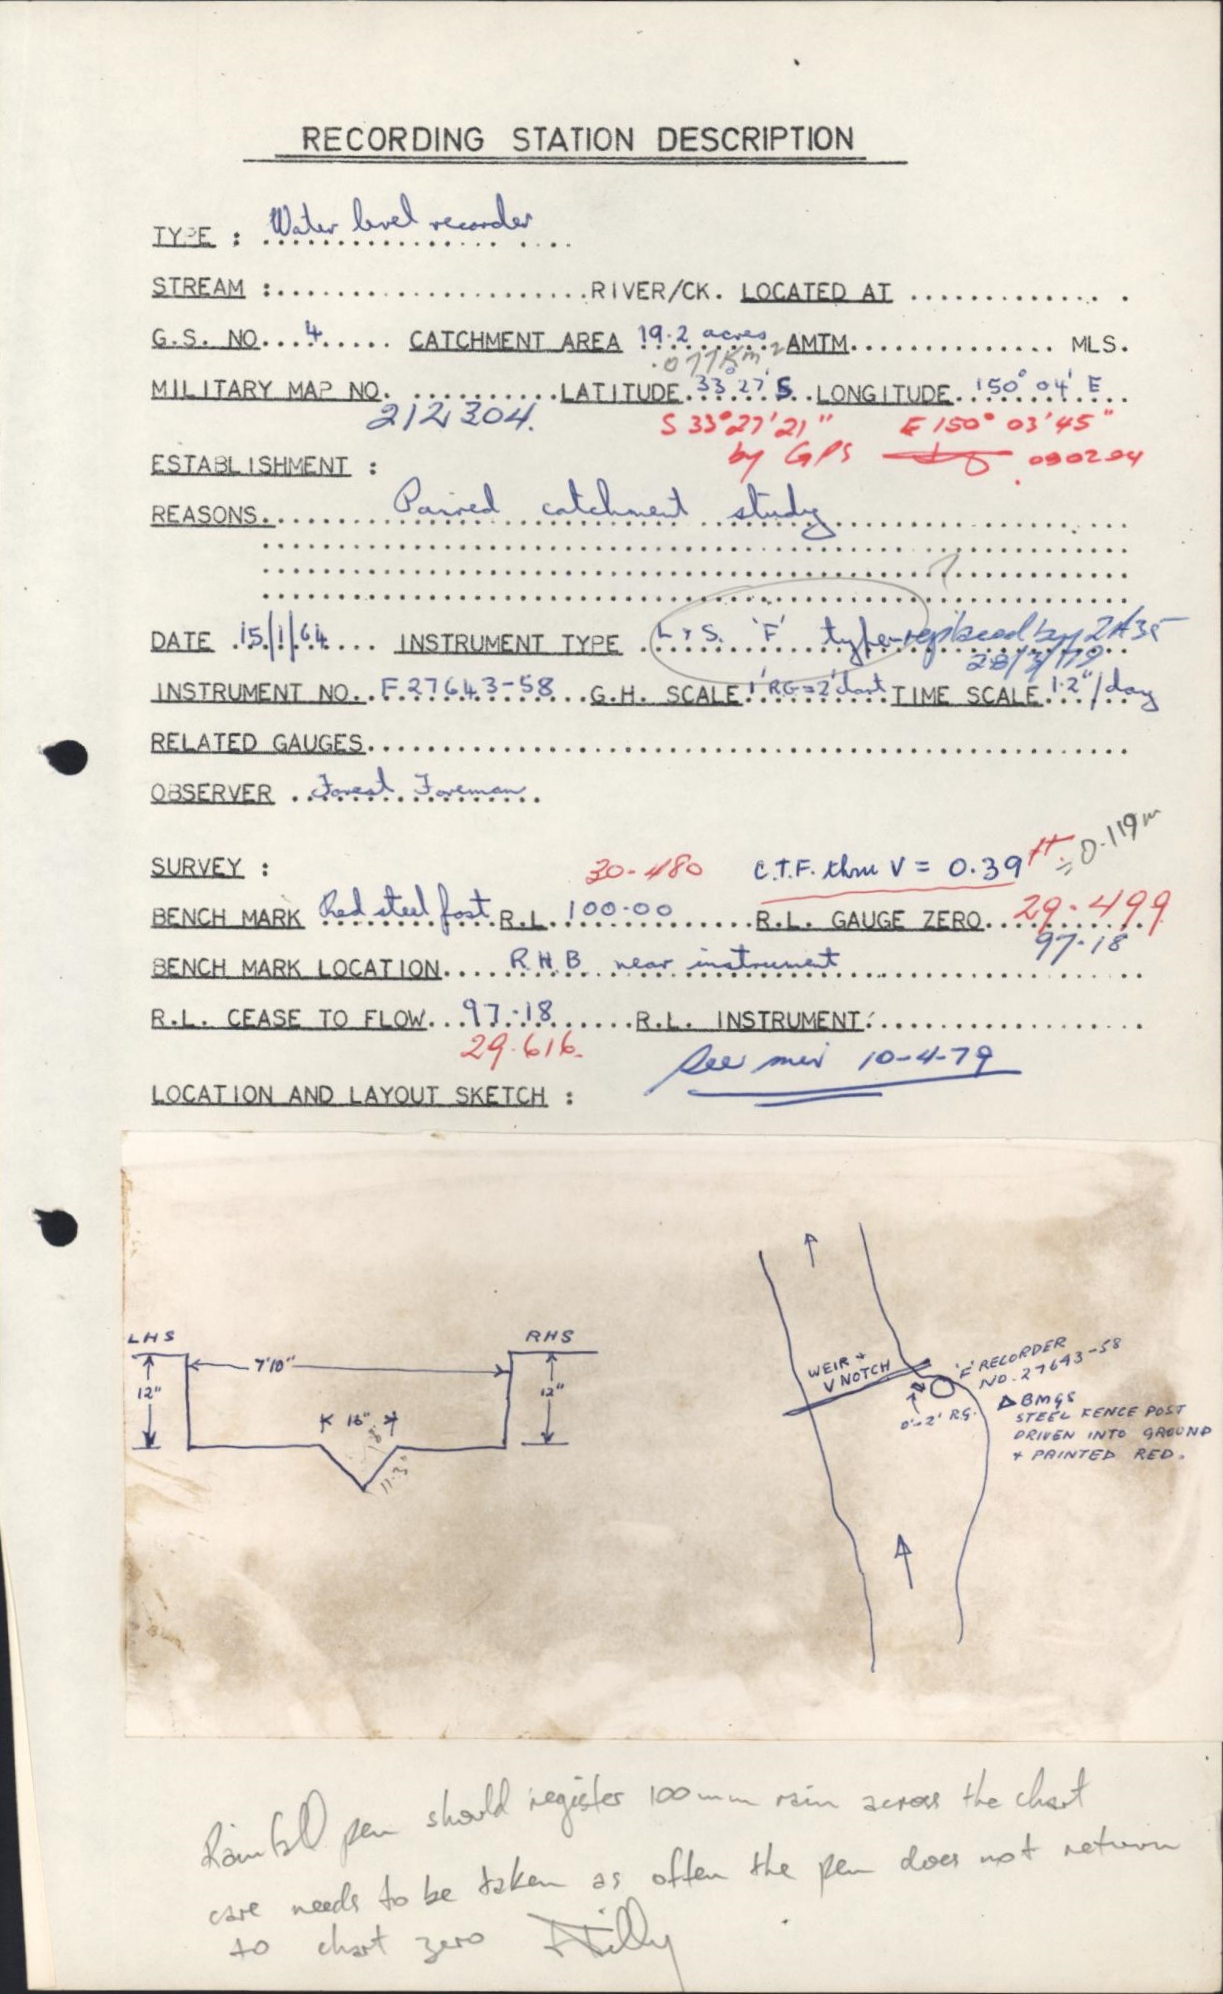 RECORDING STATION DESCRIPTION
TYPE : Water level recorder
STREAM :......................RIVER/CK. LOCATED AT ..............
G.S. NO....4...... CATCHMENT AREA 19.2 acres AMTM............... MLS.
.077 Km²
MILITARY MAP NO. ............LATITUDE 33° 27' S. LONGITUDE 150° 04' E
212304. S 33°27'21" E 150° 03'45"
by GPS 090294
ESTABLISHMENT :
REASONS Paired catchment study
?
DATE 15/1/64 INSTRUMENT TYPE L & S. 'F' type replaced by 2A35
28/3/79
INSTRUMENT NO. F27643-58 G.H. SCALE 1' RG = 2' chart TIME SCALE 1.2"/day
RELATED GAUGES
OBSERVER Forest Foreman
SURVEY : 30.480 C.T.F. thru V = 0.39 ft = 0.119m
BENCH MARK Red steel post R.L. 100.00 R.L. GAUGE ZERO 29.499
97.18
BENCH MARK LOCATION R.H.B near instrument
R.L. CEASE TO FLOW 97.18 R.L. INSTRUMENT
29.616.
See 10-4-79
LOCATION AND LAYOUT SKETCH :
LHS RHS
7'10"
12" 12"
16"
11.3"
WEIR +
V NOTCH
'F' RECORDER
NO. 27643-58
0'-2' RG.
△ BMGS
STEEL FENCE POST
DRIVEN INTO GROUND
+ PAINTED RED.
Rainfall pen should register 100mm rain across the chart
care needs to be taken as often the pen does not return
to chart zero